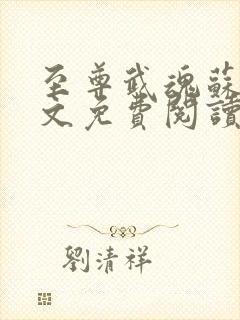 至尊武魂蘇
文免費閱讀
劉清祥